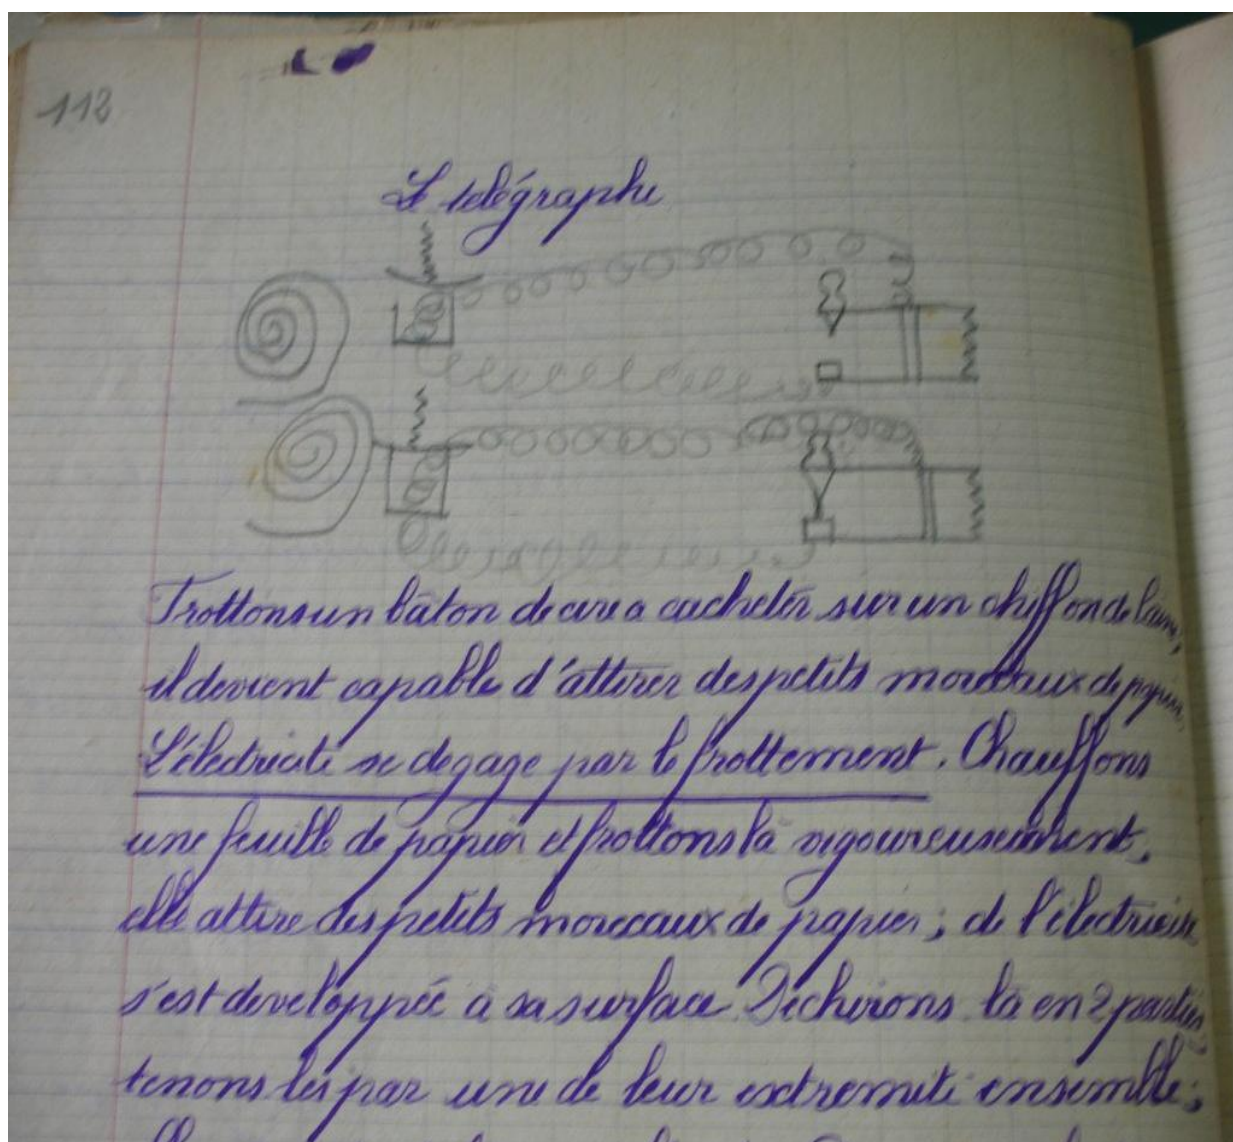 112
Le telégraphe
Frottons un bâton de cire a cacheter sur un chiffon de laine,
il devient capable d'attirer des petits morceaux de papier.
L'électricité se degage par le frottement. Chauffons
une feuille de papier et frottons là vigoureusement,
elle attire des petits morceaux de papier ; de l'électricité
s'est developpée à sa surface Déchirons là en 2 parties,
tenons les par une de leur extremité ensemble ;